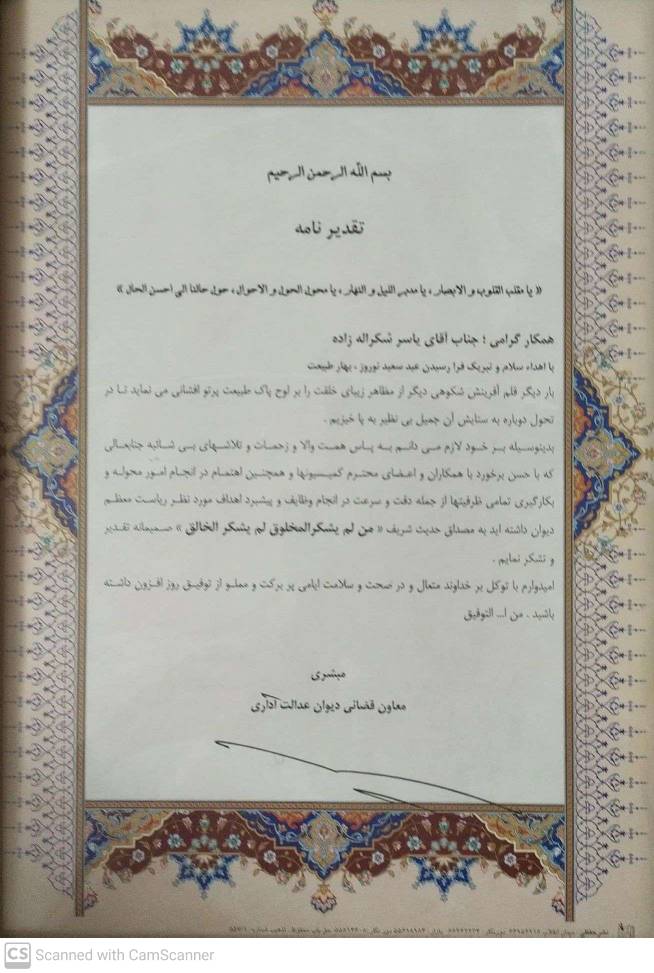 بسم الله الرحمن الرحیم
تقدیر نامه
« یا مقلب القلوب و الابصار ، یا مدبر اللیل و النهار ، یا محول الحول و الاحوال ، حول حالنا الی احسن الحال »
همکار گرامی ؛ جناب آقای یاسر شکراله زاده
با اهداء سلام و تبریک فرا رسیدن عید سعید نوروز ، بهار طبیعت
بار دیگر قلم آفرینش شکوهی دیگر از مظاهر زیبای خلقت را بر لوح پاک طبیعت پرتو افشانی می نماید تا در
تحول دوباره به ستایش آن جمیل بی نظیر به پا خیزیم .
بدینوسیله بر خود لازم می دانم به پاس همت والا و زحمات و تلاشهای بی شائبه جنابعالی
که با حسن برخورد با همکاران و اعضای محترم کمیسیونها و همچنین اهتمام در انجام امور محوله و
بکارگیری تمامی ظرفیتها از جمله دقت و سرعت در انجام وظایف و پیشبرد اهداف مورد نظر ریاست معظم
دیوان داشته اید به مصداق حدیث شریف « من لم یشکرالمخلوق لم یشکر الخالق » صمیمانه تقدیر
و تشکر نمایم .
امیدوارم با توکل بر خداوند متعال و در صحت و سلامت ایامی پر برکت و مملو از توفیق روز افزون داشته
باشید . من ا... التوفیق
مبشری
معاون قضائی دیوان عدالت اداری
CS Scanned with CamScanner